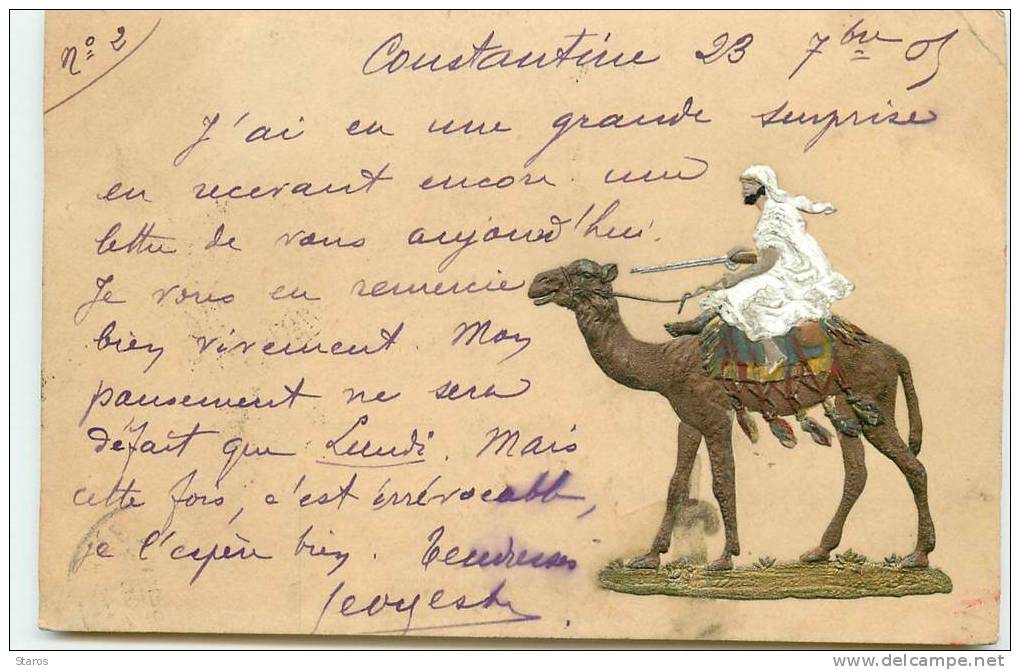 nº 2
Constantine 23 7bre 05
J'ai eu une grande surprise
en recevant encore une
lettre de vous aujourd'hui.
Je vous en remercie
bien vivement. Mon
pansement ne sera
défait que Lundi. Mais
cette fois, c'est irrévocable,
je l'espère bien. Tendresses
Staros
www.delcampe.net